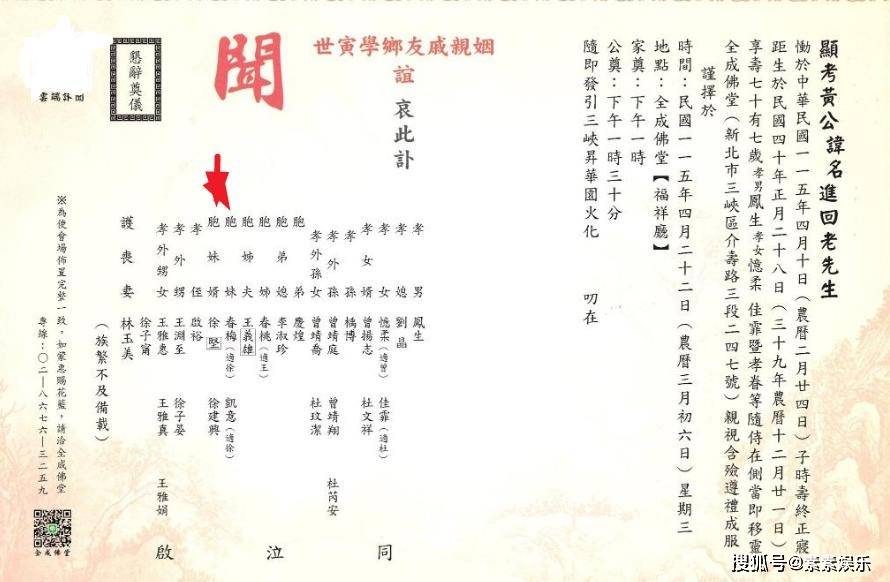 顯考黃公諱名進回老先生
慟於中華民國一一五年四月十日(農曆二月廿四日)子時壽終正寢
距生於民國四十年正月二十八日(三十九年農曆十二月廿一日)
享壽七十有七歲 孝男鳳生 孝女憶柔 佳霏暨孝眷等隨侍在側當即移靈
全成佛堂(新北市三峽區介壽路三段二四七號)親視含殮遵禮成服
謹擇於
時間:民國一一五年四月二十二日(農曆三月初六日)星期三
地點:全成佛堂【福祥廳】
家奠:下午一時
公奠:下午一時三十分
隨即發引三峽昇華園火化 叨在
姻親戚友鄉學寅世
誼 哀此訃
聞
孝男 鳳生
孝媳 劉晶
孝女 憶柔(適曾) 佳霏(適杜)
孝女婿 曾揚志 杜文祥
孝孫 橋博
孝外孫 曾靖庭 曾靖翔 杜芮安
孝外孫女 曾靖喬 杜玟潔
胞弟 慶煌
胞弟媳 李淑珍
胞姊 春桃(適王)
胞姊夫 王義雄
胞妹 春梅(適徐) 凱意(適徐)
胞妹婿 徐堅 徐建興
孝姪 啟裕
孝外甥 王淵至 徐子晏
孝外甥女 王雅惠 王雅真 王雅娟
徐子甯
護喪妻 林玉美
(族繁不及備載)
同
泣
啟
懇辭奠儀
雲端訃聞
※為使會場佈置完整一致,如蒙惠賜花籃,請洽全成佛堂
專線:○二—八六七六—三二五九
全成佛堂
搜狐号@素素娱乐